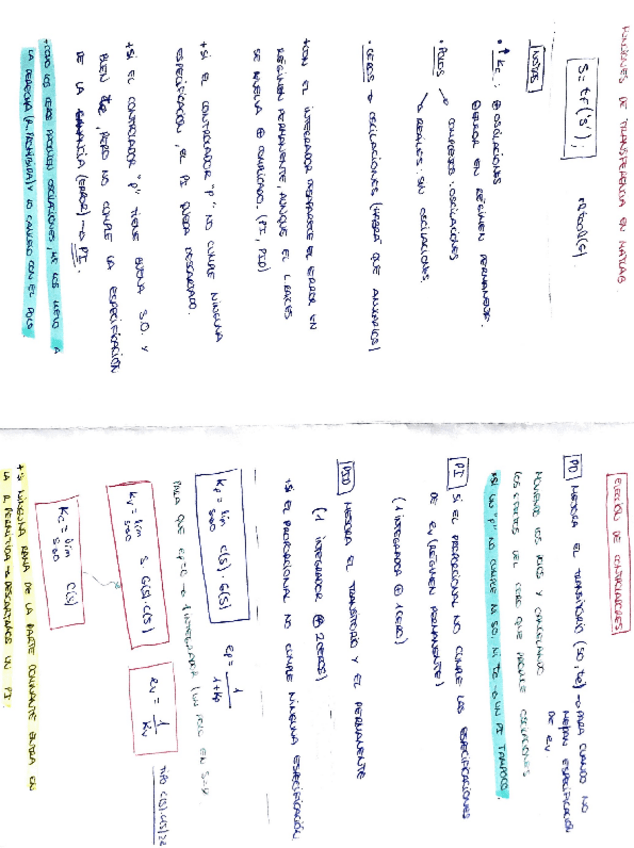 FUNCIONES DE TRANSFERENCIA EN MATLAB
S = tf('s');
rltool(G)
NOTAS
• ↑ Kc : ⊕ OSCILACIONES
⊖ ERROR EN RÉGIMEN PERMANENTE.
• POLOS → COMPLEJOS: OSCILACIONES
→ REALES: SIN OSCILACIONES.
• CEROS → OSCILACIONES (HABRÁ QUE ANULARLOS)
+ CON EL INTEGRADOR DESAPARECE EL ERROR EN
RÉGIMEN PERMANENTE, AUNQUE EL L.RAÍCES
SE VUELVA ⊕ COMPLICADO. (PI, PID)
+ SI EL CONTROLADOR "P" NO CUMPLE NINGUNA
ESPECIFICACIÓN, EL PI QUEDA DESCARTADO.
+ SI EL CONTROLADOR "P" TIENE BUENA S.O. Y
BUEN te, PERO NO CUMPLE LA ESPECIFICACIÓN
DE LA (ERROR) → PI.
+ COMO LOS CEROS PRODUCEN OSCILACIONES, ME LOS LLEVO A
LA DERECHA (R. PROHIBIDA) Y LO CANCELO CON EL POLO
ELECCIÓN DE CONTROLADORES
PD MEJORA EL TRANSITORIO (SO, te) → PARA CUANDO NO
ESPECIFICACIÓN
DE ev
MOVIENDO LOS POLOS Y CANCELANDO
LOS EFECTOS DEL CERO QUE PRODUCE OSCILACIONES
* SI UN "P" NO CUMPLE NI SO, NI te → UN PI TAMPOCO.
PI SI EL PROPORCIONAL NO CUMPLE LAS ESPECIFICACIONES
DE ev (RÉGIMEN PERMANENTE)
(1 INTEGRADOR ⊕ 1 CERO)
PID MEJORA EL TRANSITORIO Y EL PERMANENTE
(1 INTEGRADOR ⊕ 2 CEROS)
* SI EL PROPORCIONAL NO CUMPLE NINGUNA ESPECIFICACIÓN
Kp = lim s→0 C(s)·G(s)
ep = 1/(1+Kp)
PARA QUE ep=0 → 1 INTEGRADOR (UN POLO EN S=0)
Kv = lim s→0 S·G(s)·C(s)
ev = 1/Kv
Kc = lim s→0 C(s)
+ SI NINGUNA RAMA DE LA PARTE DOMINANTE ENTRA EN
LA R. PERMITIDA → DESCARTAMOS UN PI.